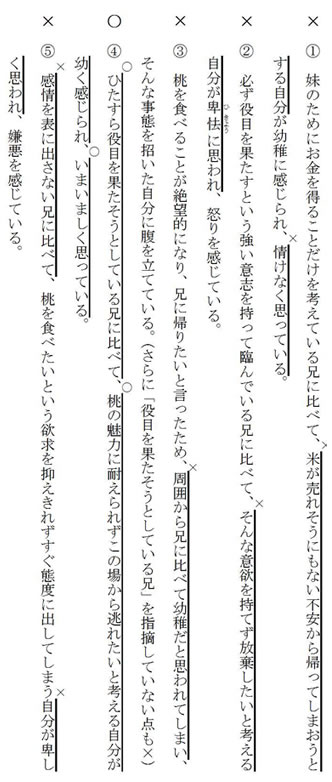 × ① 妹のためにお金を得ることだけを考えている兄に比べて、×米が売れそうにもない不安から帰ってしまおうと
する自分が幼稚に感じられ、×情けなく思っている。
× ② 必ず役目を果たすという強い意志を持って臨んでいる兄に比べて、×そんな意欲を持てず放棄したいと考える
自分が卑怯に思われ、怒りを感じている。
× ③ 桃を食べることが絶望的になり、兄に帰りたいと言ったため、×周囲から兄に比べて幼稚だと思われてしまい、
そんな事態を招いた自分に腹を立てている。(さらに「役目を果たそうとしている兄」を指摘していない点も×)
○ ④ ○ひたすら役目を果たそうとしている兄に比べて、○桃の魅力に耐えられずこの場から逃れたいと考える自分が
幼く感じられ、○いまいましく思っている。
× ⑤ ×感情を表に出さない兄に比べて、桃を食べたいという欲求を抑えきれずすぐ態度に出してしまう×自分が卑し
く思われ、嫌悪を感じている。